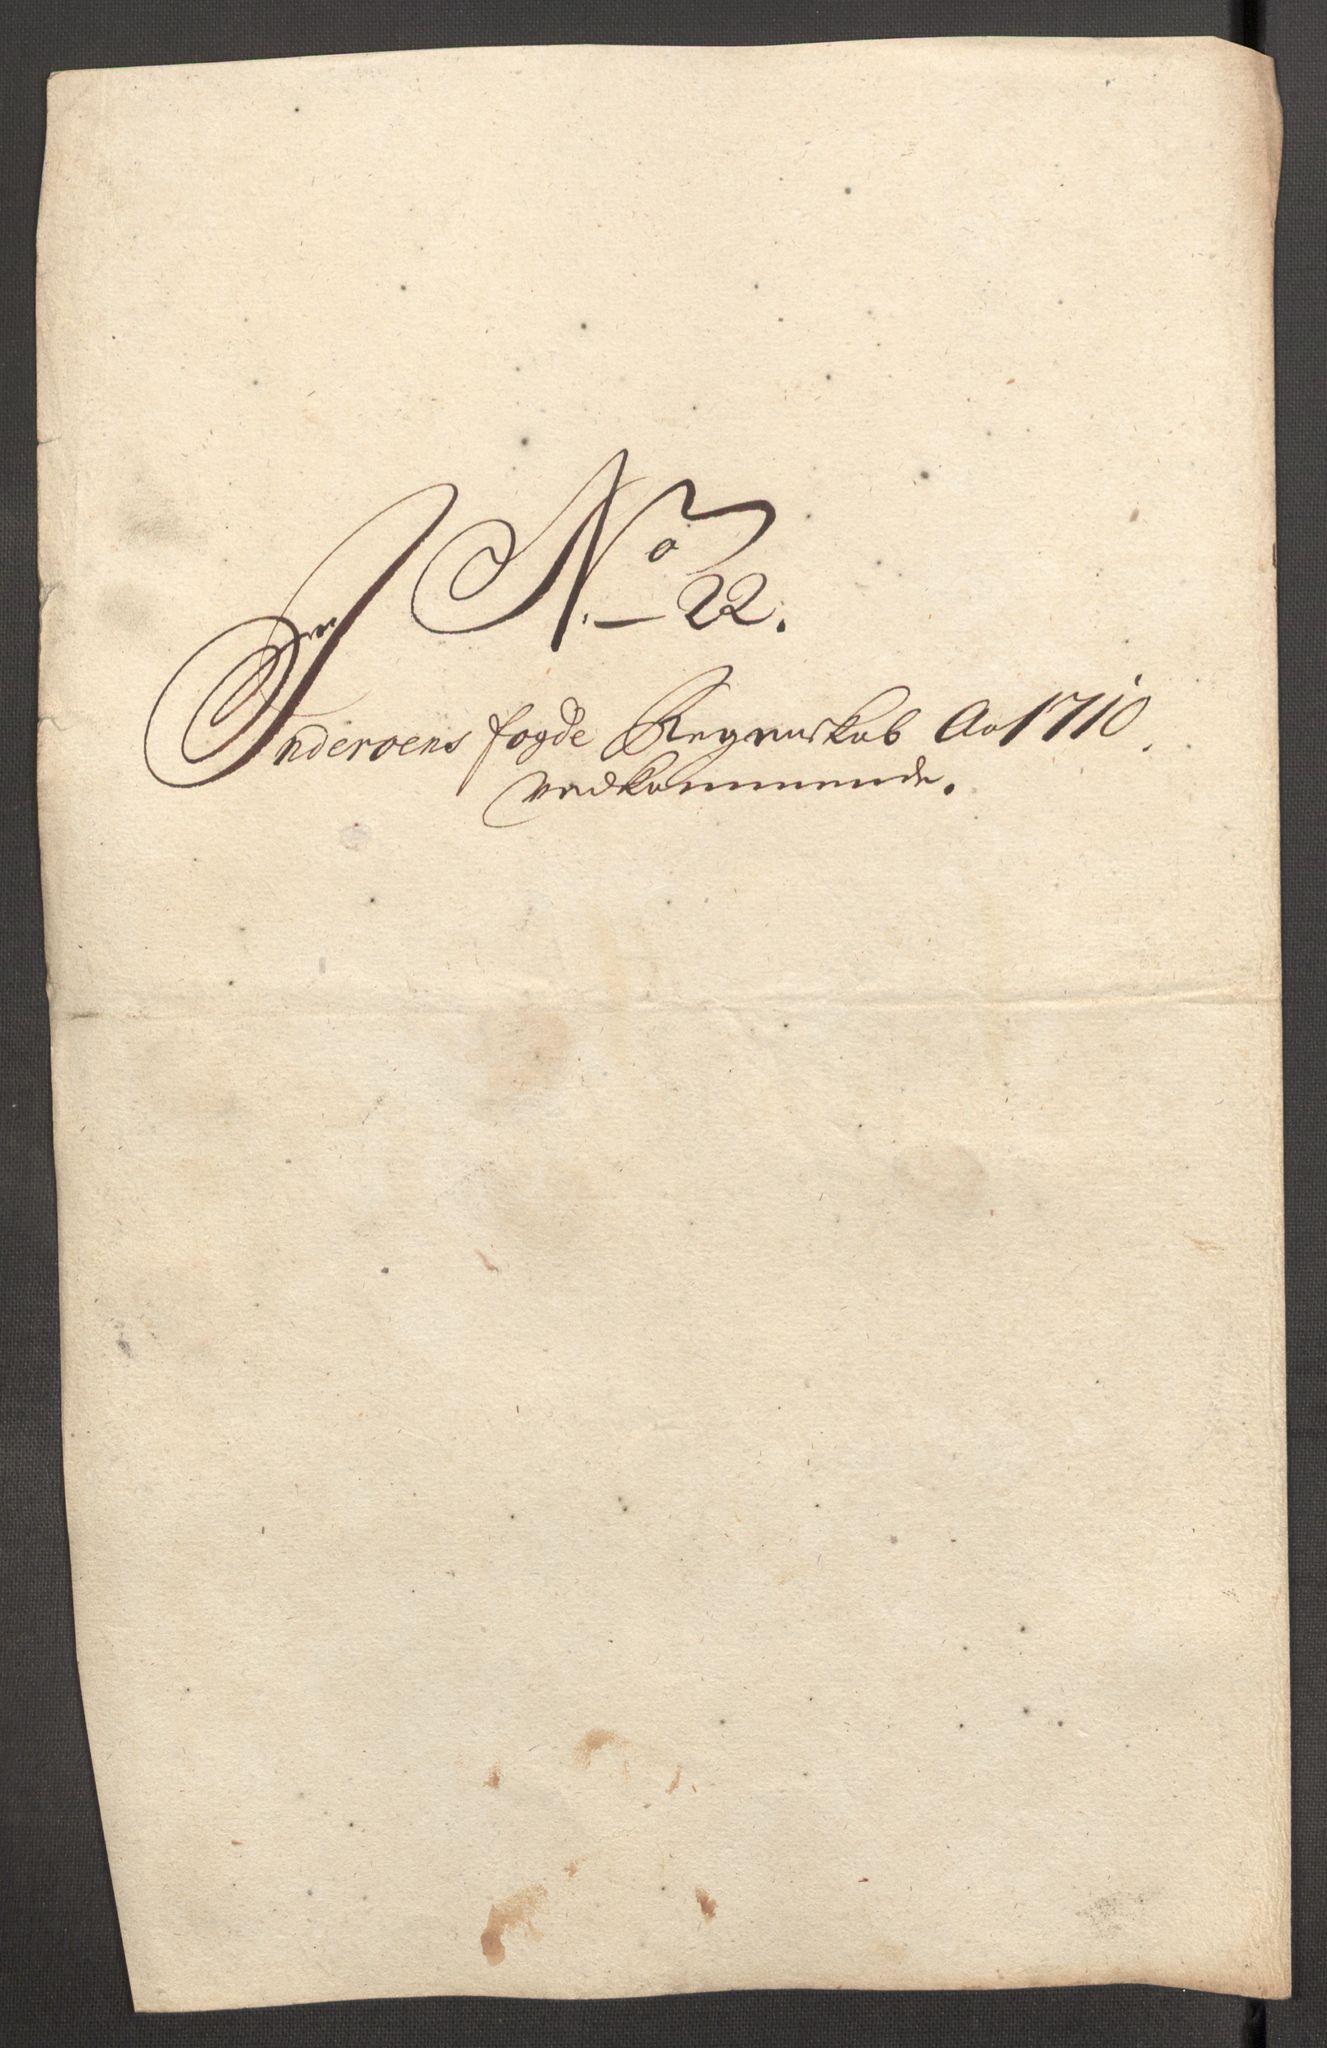 No 22.
Inderoens fogde Regnskab Ao 1710.
vedkommende.